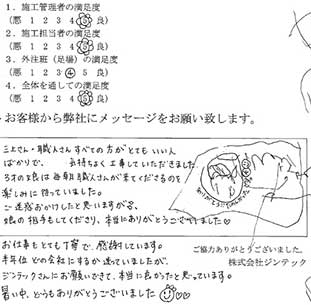 1．施工管理者の満足度
(悪 1 2 3 4 5 良)
2．施工担当者の満足度
(悪 1 2 3 4 5 良)
3．外注班（足場）の満足度
(悪 1 2 3 4 5 良)
4．全体を通しての満足度
(悪 1 2 3 4 5 良)
お客様から弊社にメッセージをお願い致します。
さん・職人さんすべての方がとてもいい人
ばかりで、気持ちよく工事していただきました。
3才の娘は毎朝職人さんが来てくださるのを
楽しみに待っていました。
ご迷惑おかけしたと思いますが、
娘の相手もしてくださり、本当にありがとうございました♡
お仕事もとても丁寧で、感謝しています。
半年位どの会社にするか迷っていましたが、
ジンテックさんにお願いできて、本当に良かったと思っています。
暑い中、どうもありがとうございました
ご協力ありがとうございました。
株式会社ジンテック